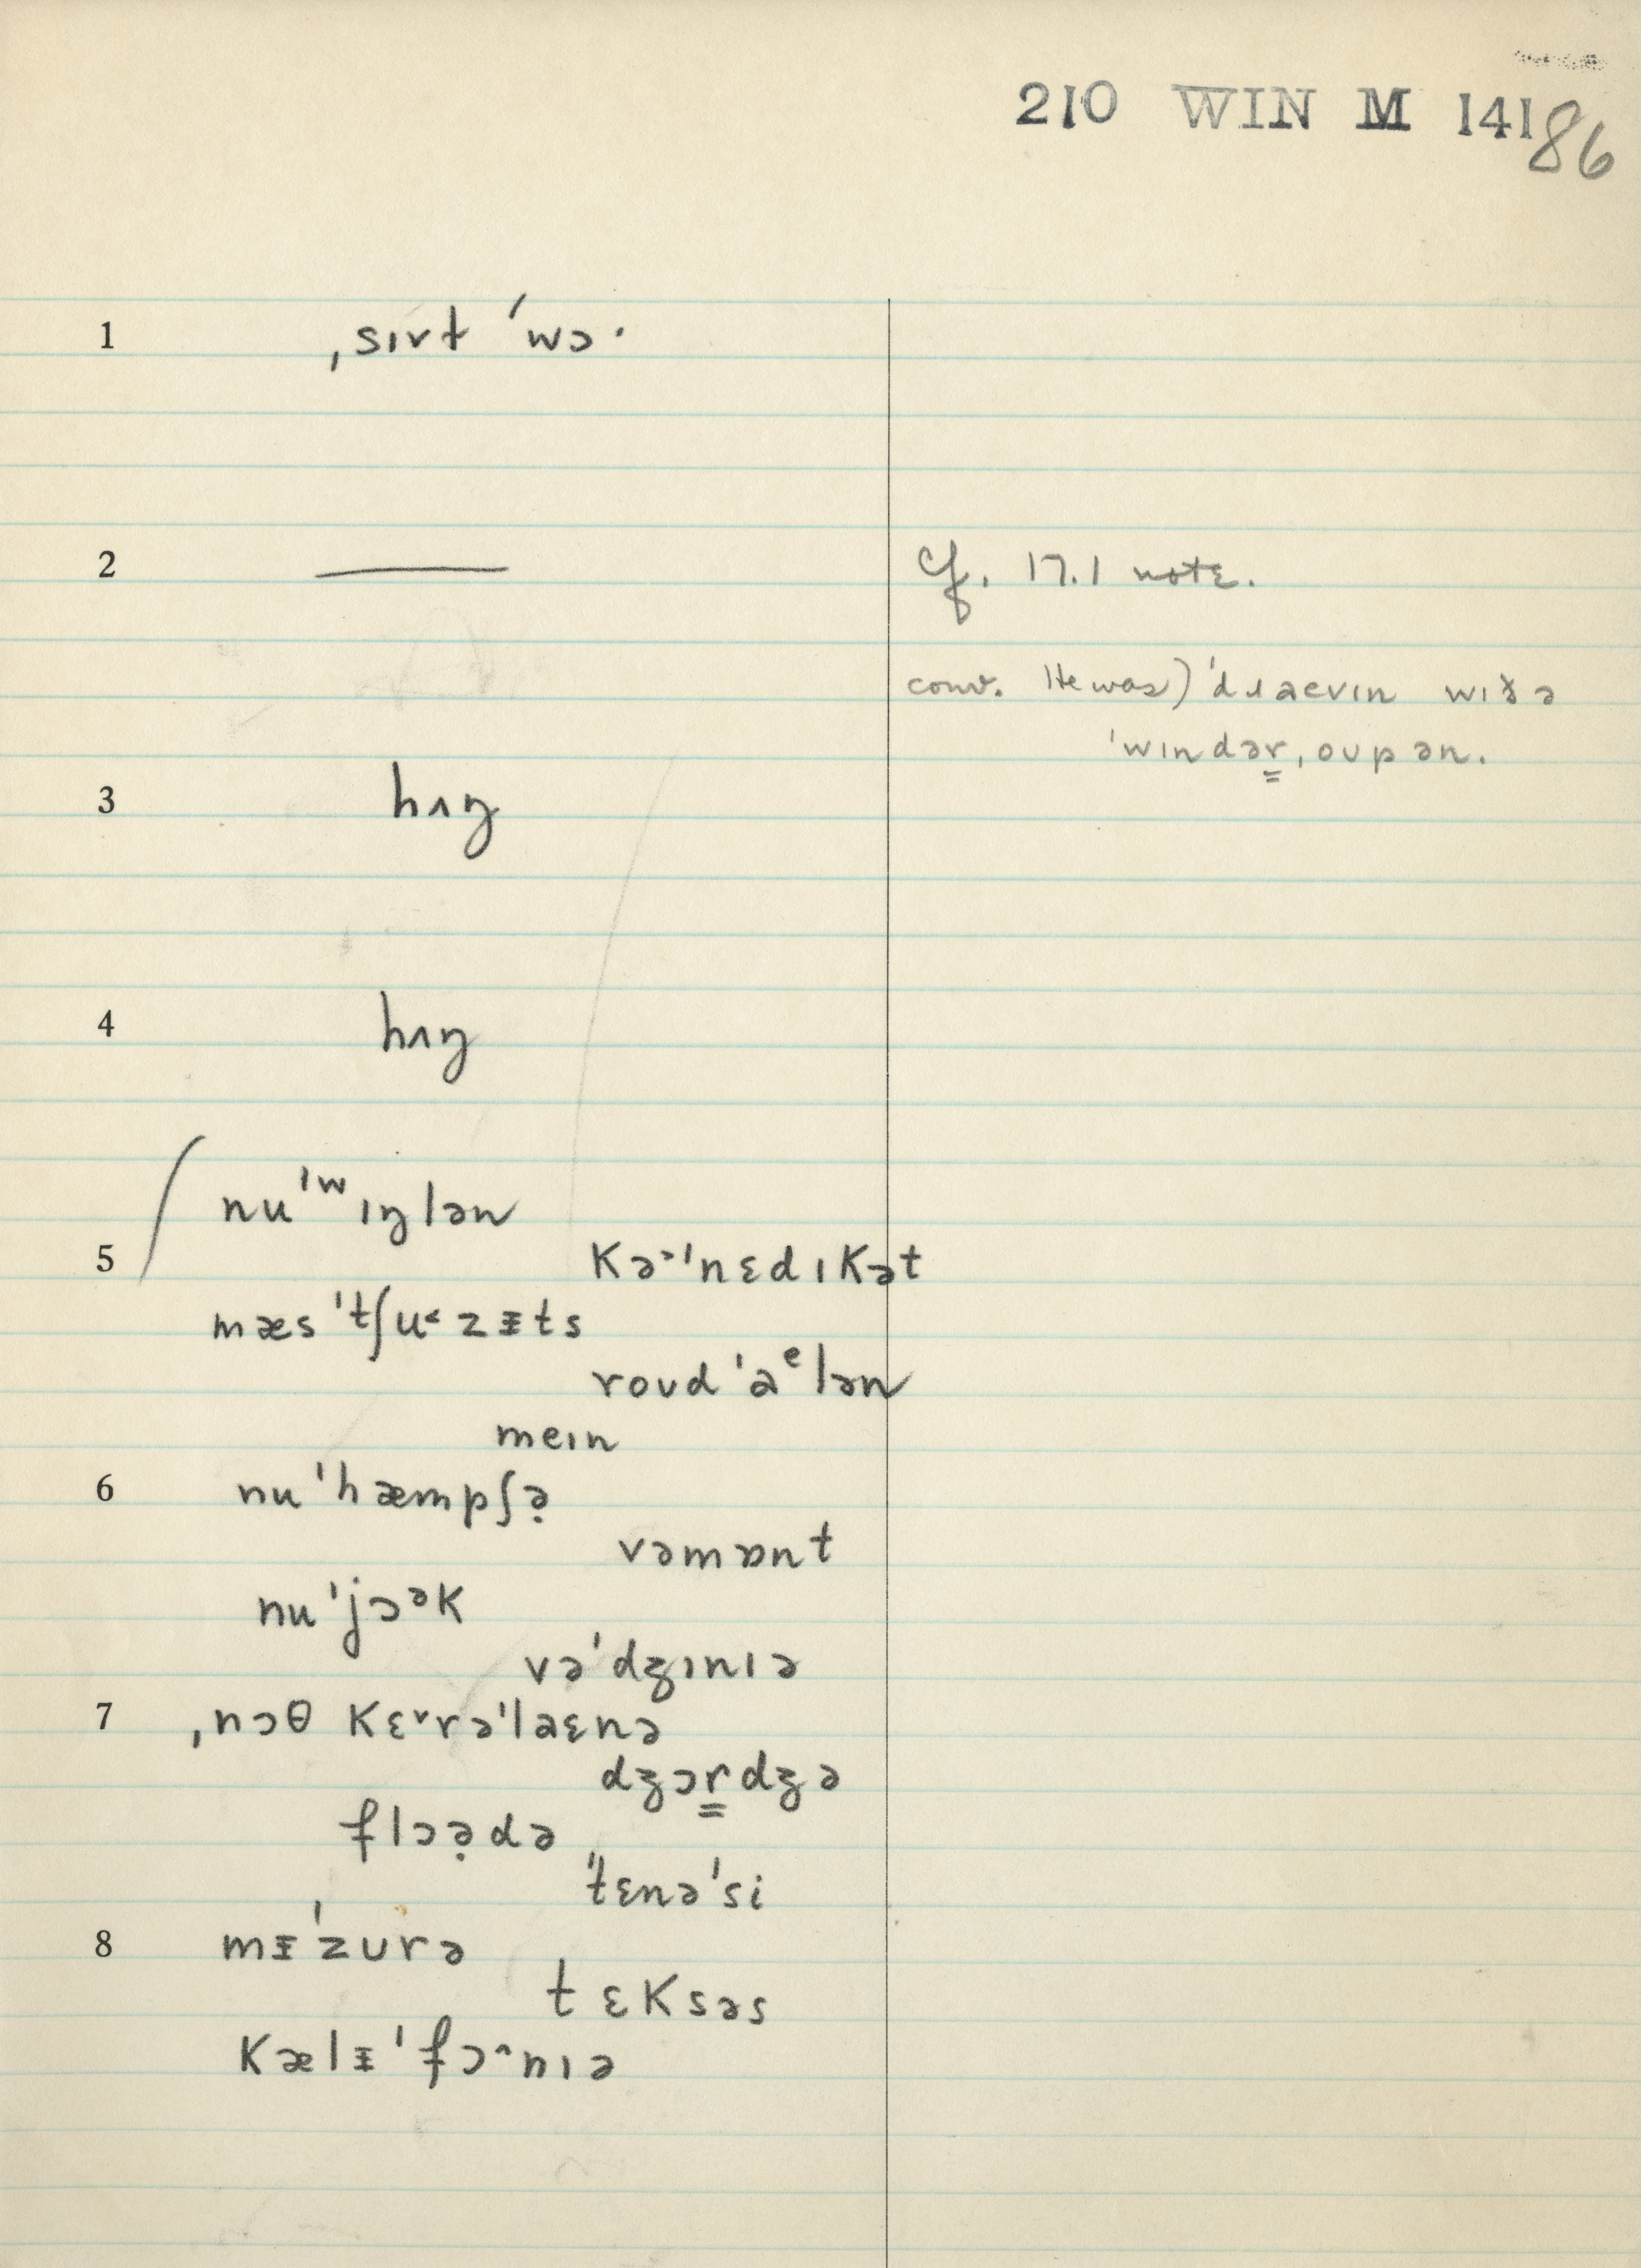 210 WIN M 141
86
1 ˌsɪvt ˈwɔ·
2 —— Cf. 17.1 note.
conv. He was) ˈdɹaevɪn wɪð ə
ˈwɪndər̳ˌoupən.
3 hʌŋ
4 hʌŋ
nuˈʷɪŋlən
5 Kə˃ˈnɛdɪKət
mæsˈtʃu˂zᵻts
roudˈaᵉlən
meɪn
6 nuˈhæmpʃə̣
vəmɒnt
nuˈjɔᵊK
vəˈdʒɪnɪə
7 ˌnɔθ Kɛ˅rəˈlaɛnə
dʒɔr̳dʒə
flɔə̣də
ˈtɛnəˈsi
8 mᵻˈzurə
tɛKsəs
Kælᵻˈfɔ˄nɪə